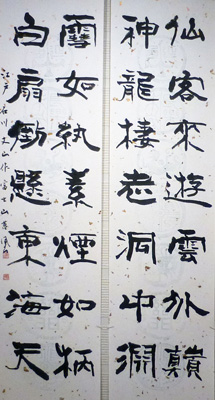 仙客來遊雲外巔
神龍棲老洞中淵
雪如紈素煙如柄
白扇倒懸東海天
江戸 石川丈山作 富士山